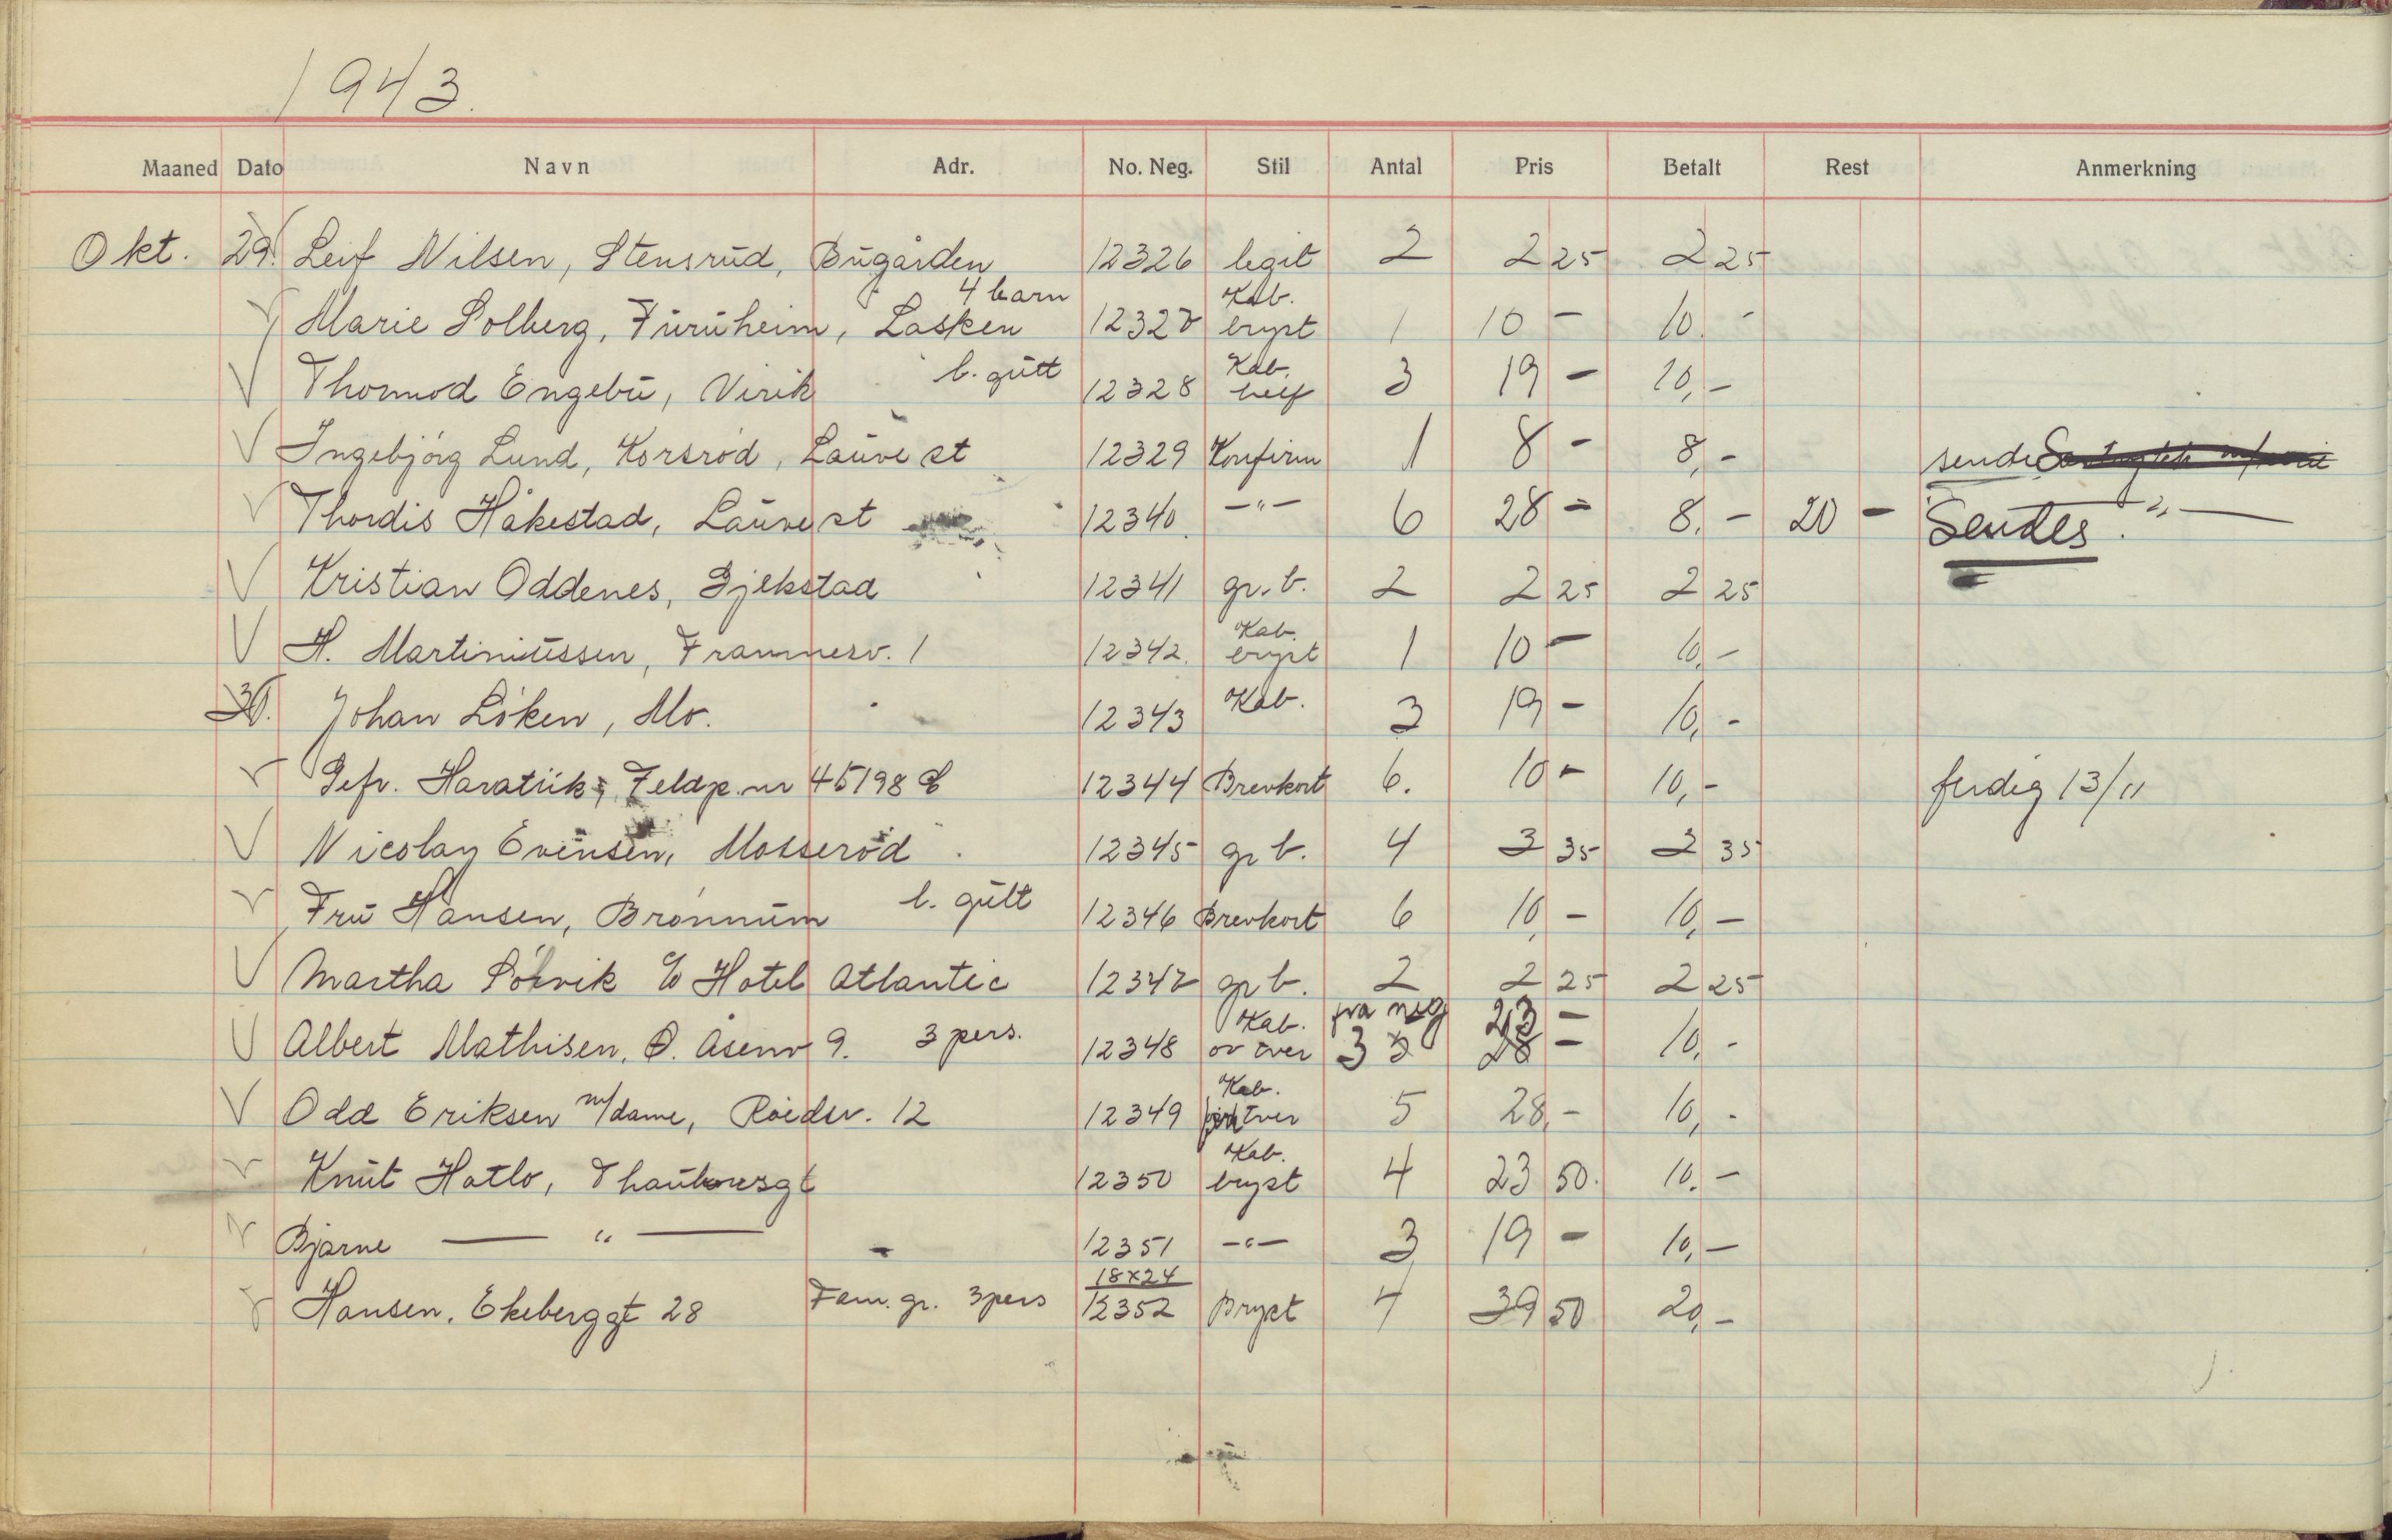 1943.
Maaned Dato Navn Adr. No. Neg. Stil Antal Pris Betalt Rest Anmerkning
Okt. 29. Leif Nilsen, Stensrud, Bugården 12326 legit 2 2 25 2 25
4 barn Kab.
Marie Solberg, Furuheim, Lasken 12327 bryst 1 10 - 10. -
b. gutt Kab.
Thormod Engebu, Virik 12328 helf 3 19 - 10,-
Ingebjörg Lund, Korsröd, Lauve st 12329 Konfirm 1 8 - 8,- sendes
Thordis Håkestad, Lauve st 12340. -"- 6 28 = 8. - 20 - Sendes. -"-
Kristian Oddenes, Gjekstad 12341 gr. b. 2 2 25 2 25
Kab.
H. Martiniussen, Framnesv. 1 12342. bryst 1 10 - 10,-
30. Johan Löken, Mo. 12343 Kab. 3 19 - 10, -
Gefr. Haratük, Feldp. nr 45198 12344 Brevkort 6. 10 - 10,- ferdig 13/11
Nicolay Evensen, Mosseröd 12345 gr b. 4 3 35 3 35
Fru Hansen, Brönnum b. gutt 12346 Brevkort 6 10, - 10, -
Martha Sörvik c/o Hotel Atlantic 12347 gr b. 2 2 25 2 25
Kab. fra neg 23 -
Albert Mathisen, Ö. Åsenv 9. 3 pers. 12348 ov tver 3 28 - 10, -
Kab.
Odd Eriksen m/dame, Röedsv. 12 12349 tver 5 28,- 10, -
Kab.
Knut Hatlo, Thaulowsgt 12350 bryst 4 23 50. 10. -
Bjarne — " — 12351 -"- 3 19 - 10, -
18x24
Hansen, Ekeberggt 28 Fam. gr. 3pers 12352 Bryst 4 39 50 20, -